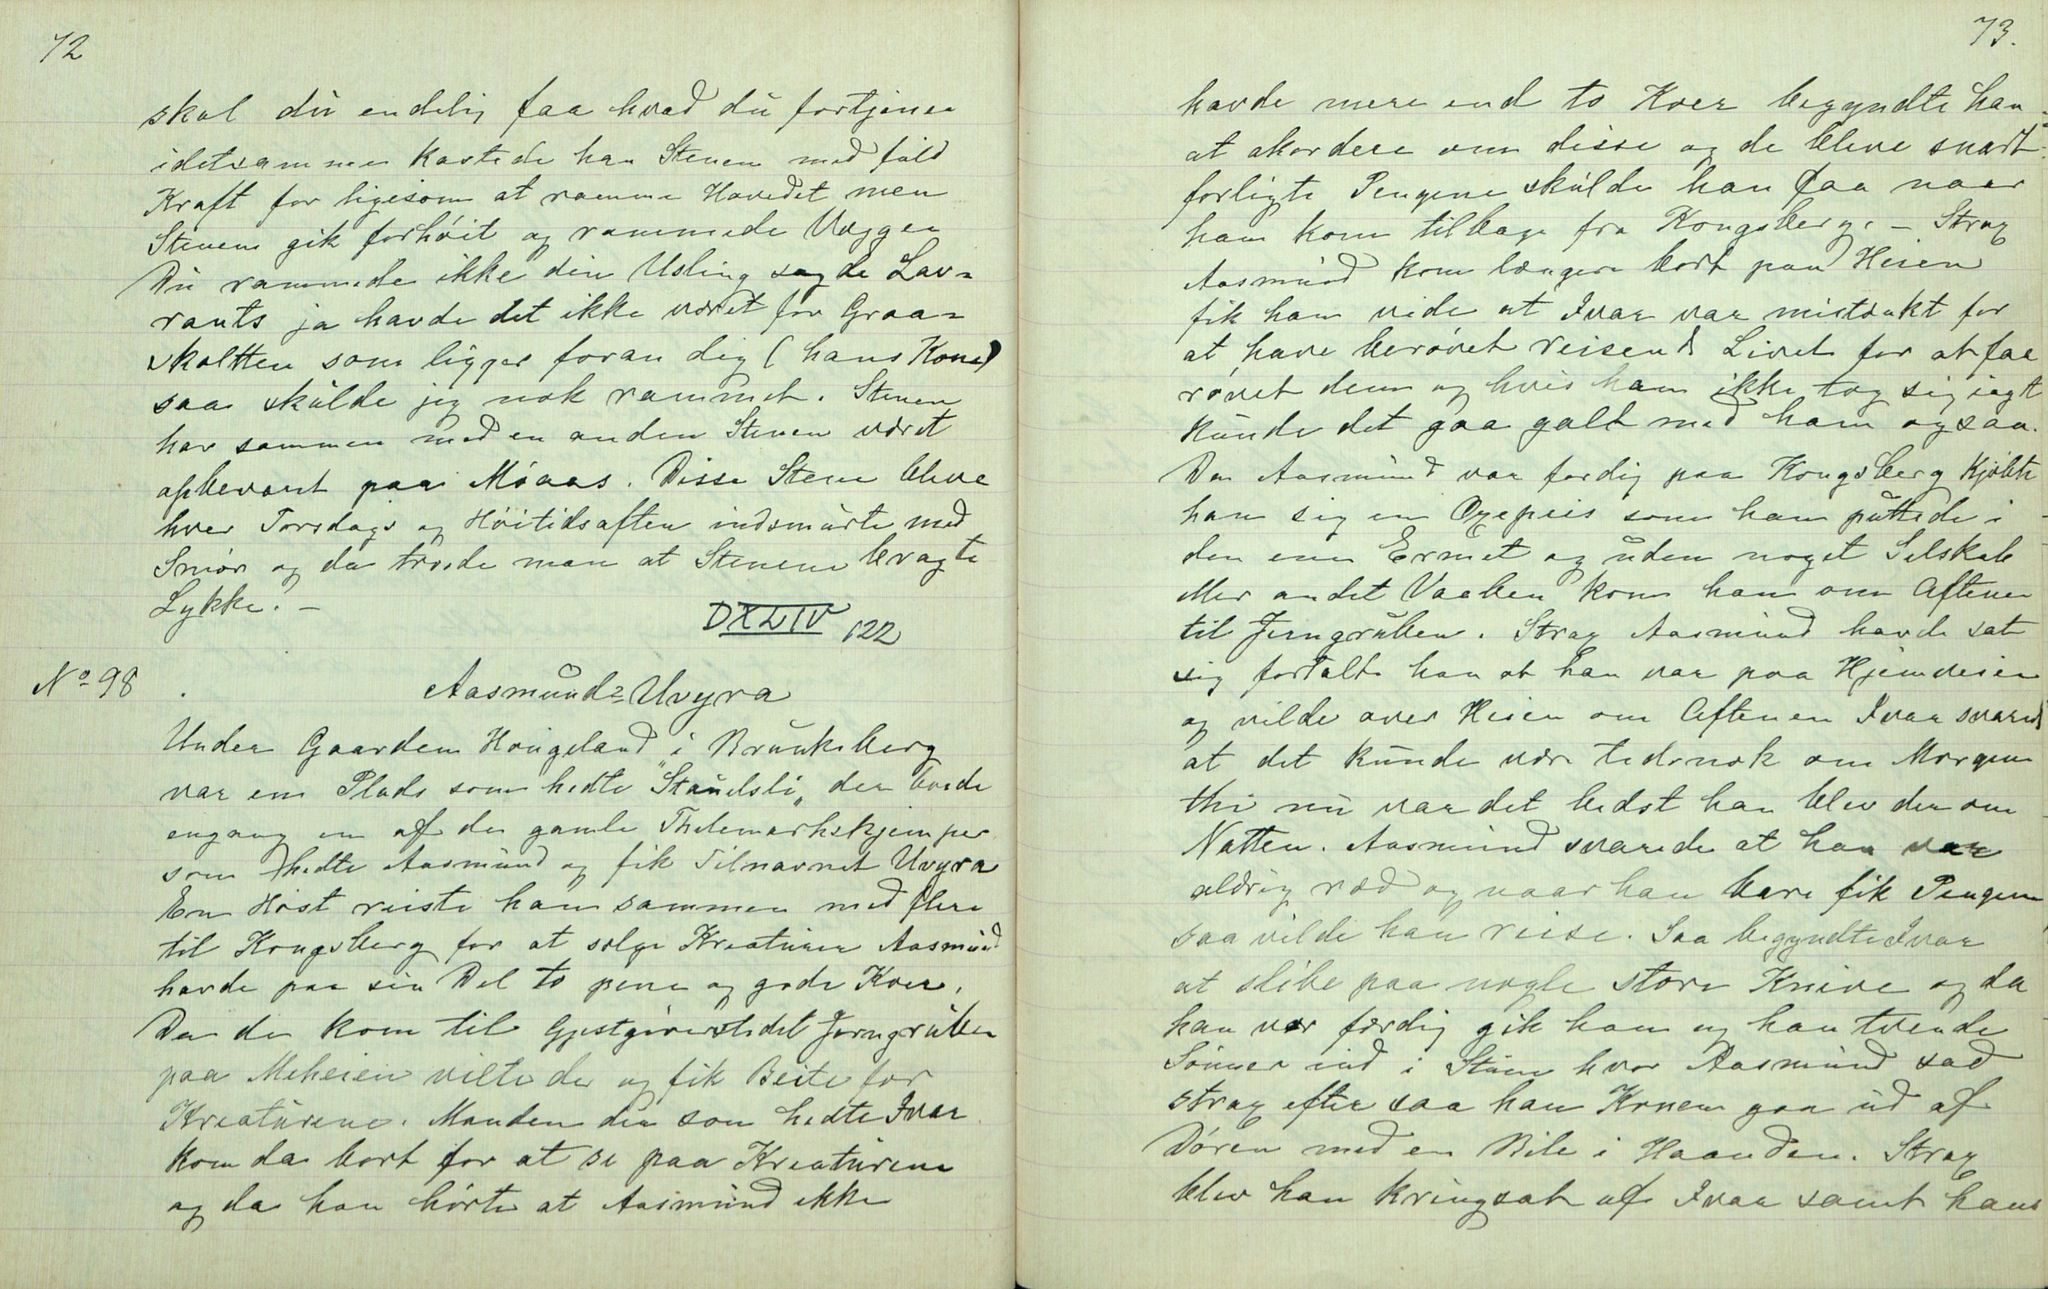 72
skal du endelig faa hvad du fortjener
idetsamme kastede han Stenen med fuld
Kraft for ligesom at ramme Hovedet men
Stenen gik forhöit og rammede Væggen
Du rammede ikke din Usling sagde Lav-
rants ja havde det ikke været for Graa-
skoltten som ligger foran dig (hans Kone)
saa skulde jeg nok rammet. Stenen
har sammen med en anden Steen været
opbevaret paa Móaas. Disse Stene bleve
hver Torsdags og Höitidsaften indsmurte med
Smör og da troede man at Stenene bragte
Lykke. –
DXLIV 122
No 98
Aasmund Uvyra
Under Gaarden Haugeland i Brunkeberg
var en Plads som hedte "Staulsli„ der boede
engang en af de gamle Thelemarkskjemper
som hedte Aasmund og fik Tilnavnet Uvyra
En Höst reiste han sammen med flere
til Kongsberg for at sælge Kreaturer Aasmund
havde paa sin Del to pene og gode Koer.
Da de kom til Gjestgiverstedet Jerngruben
paa Meheien vilte de og fik Beite for
Kreaturene. Manden der som hedte Ivar
kom da bort for at se paa Kreaturene
og da han hörte at Aasmund ikke
73.
havde mere end to Koer begyndte han
at akordere om disse og de bleve snart
forligte Pengene skulde han faa naar
han kom tilbage fra Kongsberg. – Strax
Aasmund kom længere bort paa Heien
fik han vide at Ivar var mistænkt for
at have berövet reisende Livet for at faa
rövet dem og hvis han ikke tog sig iagt
kunde det gaa galt med ham ogsaa.
Da Aasmund var færdig paa Kongsberg kjöbte
han sig en Oxepeis som han puttede i
den ene Ermet og uden noget Selskab
eller andet Vaaben kom han om Aftenen
til Jerngruben. Strax Aasmund havde sat
sig fortalte han at han var paa Hjemveien
og vilde over Heien om Aftenen Ivar svarede
at det kunde være tidsnok om Morgenen
thi nu var det bedst han blev der om
Natten. Aasmund svarede at han var
aldrig ræd og naar han bare fik Pengene
saa vilde han reise. Saa begyndte Ivar
at slibe paa nogle store Knive og da
han var færdig gik han og han tvende
Sönner ind i Stuen hvor Aasmund sad
strax efter saa han Konen gaa ud af
Dören med en Bile i Haanden. Strax
blev han kringsat af Ivar samt hans